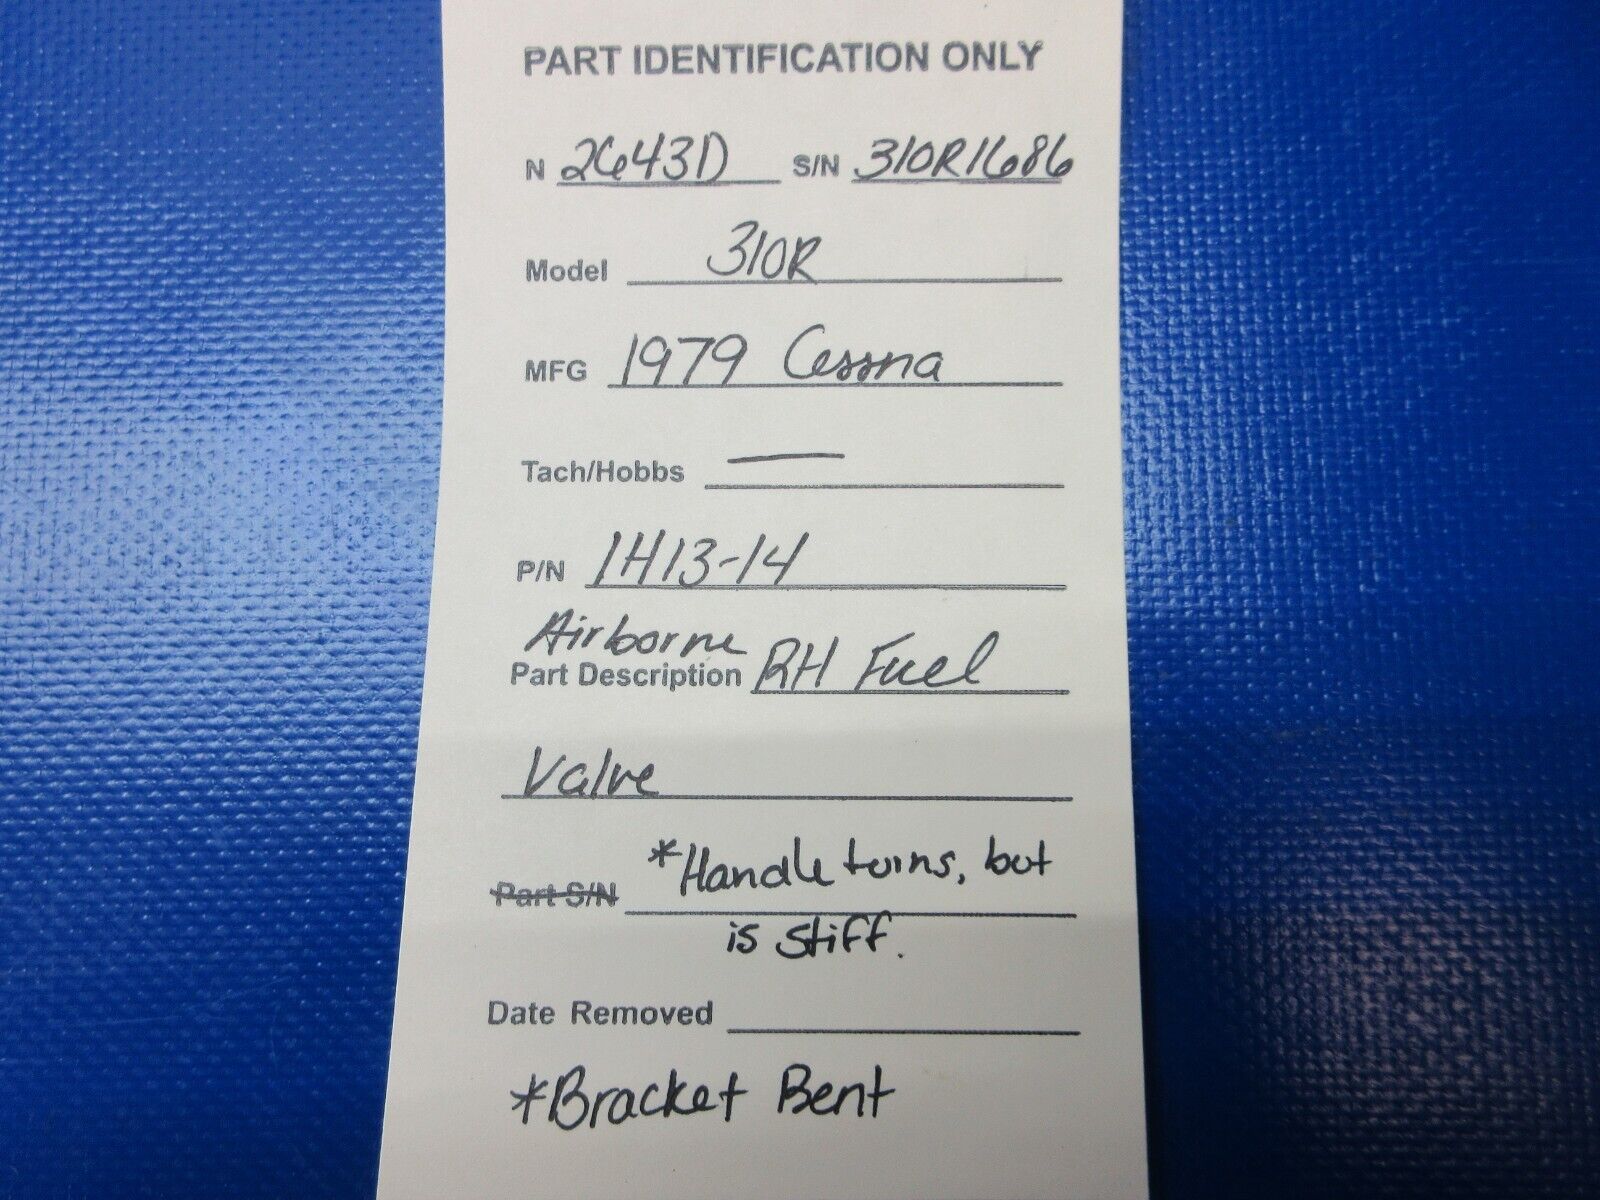 PART IDENTIFICATION ONLY
N 2643D S/N 310R1686
Model 310R
MFG 1979 Cessna
Tach/Hobbs —
P/N 1H13-14
Airborne
Part Description RH Fuel
Valve
Part S/N *Handle turns, but
is stiff.
Date Removed
*Bracket Bent